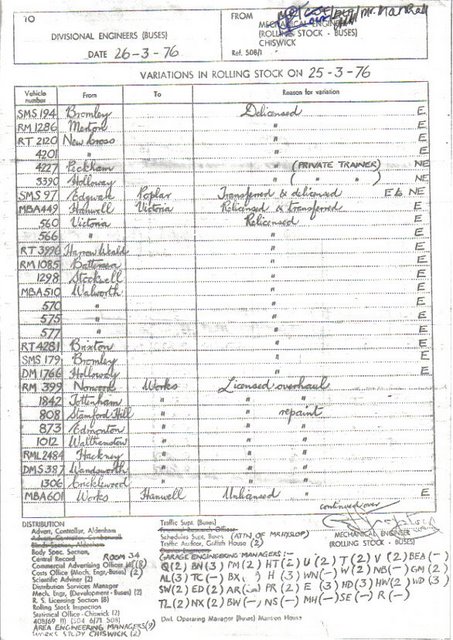 TO
DIVISIONAL ENGINEERS (BUSES)
DATE 26-3-76
FROM
MECHANICAL ENGINEER
(ROLLING STOCK - BUSES)
CHISWICK
Ref. 508/1
Mr. Marshall
VARIATIONS IN ROLLING STOCK ON 25-3-76
Vehicle number From To Reason for variation
SMS 194 Bromley Delicensed E
RM 1286 Merton " E
RT 2120 New Cross " E
4201 " " E
4227 Peckham " (PRIVATE TRAINER) NE
3390 Holloway " ( " " ) NE
SMS 97 Edgware Poplar Transferred & delicensed E to NE
MBA 449 Hanwell Victoria Relicensed & transferred E
560 Victoria Relicensed E
566 " " E
RT 3996 Harrow Weald " E
RM 1085 Battersea " E
1298 Stockwell " E
MBA 510 Walworth " E
570 " " E
575 " " E
577 " " E
RT 4281 Brixton " E
SMS 179 Bromley " E
DM 1766 Holloway " E
RM 399 Norwood Works Licensed overhaul
1842 Tottenham " "
808 Stamford Hill " " repaint
873 Edmonton " " "
1012 Walthamstow " " "
RML 2484 Hackney " " "
DMS 387 Wandsworth " " "
1306 Cricklewood " " "
MBA 601 Works Hanwell Unlicensed " E
continued over
MECHANICAL ENGINEER
(ROLLING STOCK - BUSES)
DISTRIBUTION
Advert. Controller, Aldenham
Body Spec. Section,
Central Record ROOM 34
Commercial Advertising Officer
Costs Office (Mech. Engr.-Buses) (2)
Scientific Adviser (2)
Distribution Services Manager
Mech. Engr. (Development - Buses) (2)
R. S. Licensing Section (8)
Rolling Stock Inspection
Statistical Office - Chiswick (2)
AREA ENGINEERING MANAGERS(9)
WORKS STUDY CHISWICK (2)
Traffic Supt. (Buses)
Scheduling Supt. (Buses) (ATN OF MR HYSLOP)
Traffic Auditor, Griffith House (2)
GARAGE ENGINEERING MANAGERS:-
Q(2) BN(3) PM(2) HT(2) U(2) T(2) V(2) BEA(-)
AL(3) TC(-) BX( ) H(3) WN(-) W(2) NB(-) GM(2)
SW(2) ED(2) AR( ) PR(2) E(3) ND(3) HW(2) WD(3)
TL(2) NX(2) BW(-) NS(-) MH(-) SE(-) R(-)
Divl. Operating Manager (Buses) Manson House